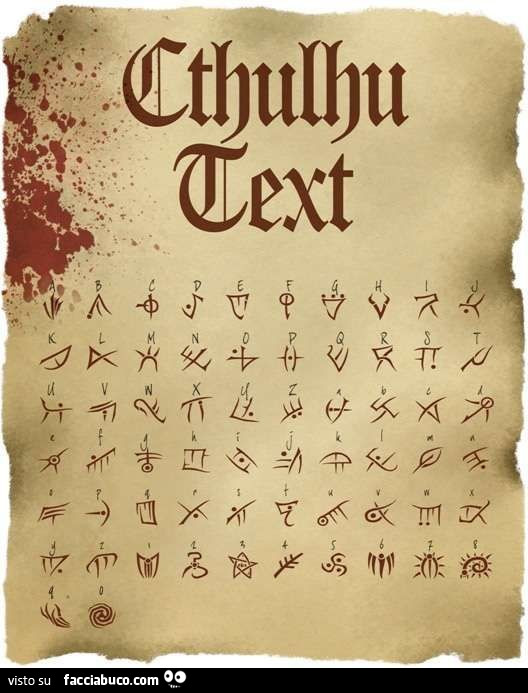 Cthulhu
Text
A B C D E F G H I J
K L M N O P Q R S T
U V W X Y Z a b c d
e f g h i j k l m n
o p q r s t u v w x
y z 1 2 3 4 5 6 7 8
9 0
visto su facciabuco.com